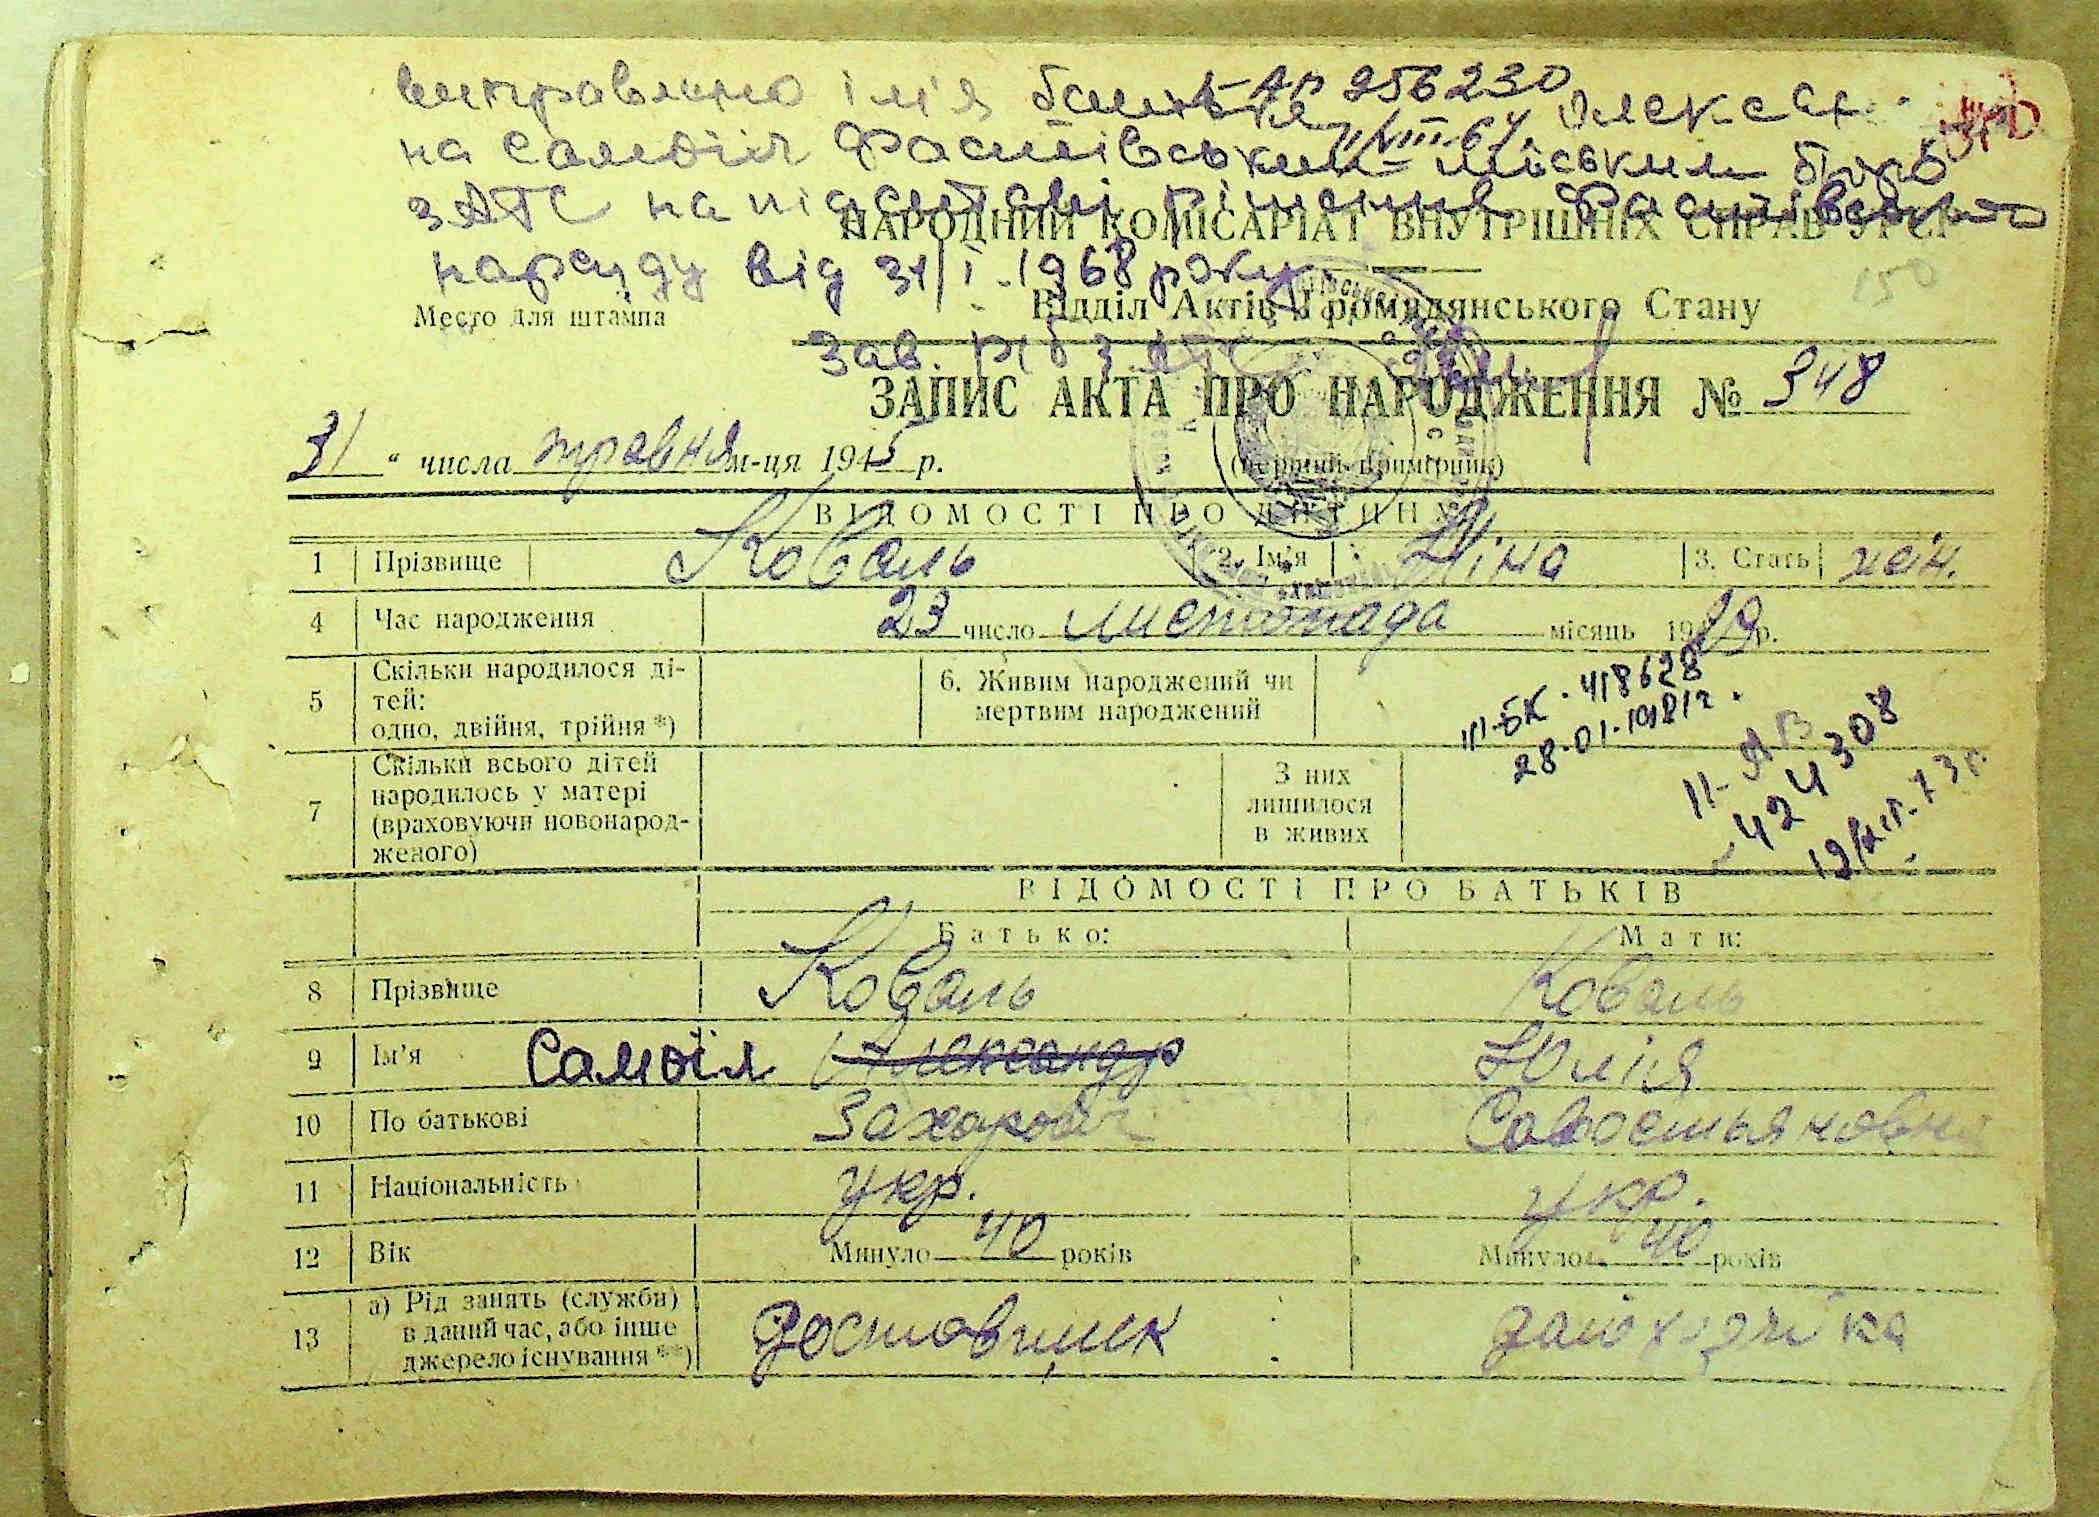 виправлено ім'я батька Олександр
I-АР 256230
на Самоїл Фастівським міським бюро
11/VIII-64.
ЗАГС на підставі рішення Фастівського
НАРОДНИЙ КОМІСАРІАТ ВНУТРІШНІХ СПРАВ УРСР
нарсуду від 31/I-1968 року.
150
Место для штампа
Відділ Актів Громадянського Стану
Зав. р/б ЗАГС
ЗАПИС АКТА ПРО НАРОДЖЕННЯ № 348
31 " числа травня м-ця 1945 р.
(перший примірник)
ВІДОМОСТІ ПРО ДИТИНУ
1 Прізвище Коваль 2. Ім'я Ніна 3. Стать жін.
4 Час народження 23 число листопада місяць 1929 р.
5 Скільки народилося ді-
тей:
одно, двійня, трійня *)
6. Живим народжений чи
мертвим народжений
III-БК. 418628
28.01.1981г.
7 Скільки всього дітей
народилось у матері
(враховуючи новонарод-
женого)
З них
лишилося
в живих
II-АВ
424308
ВІДОМОСТІ ПРО БАТЬКІВ
Батько: Мати:
8 Прізвище Коваль Коваль
9 Ім'я Самоїл Александр Юлія
10 По батькові Захарович Савостьяновна
11 Національність укр. укр.
12 Вік Минуло 40 років Минуло 40 років
13 а) Рід занять (служби)
в даний час, або інше
джерело існування **)
доставщик домохазяйка